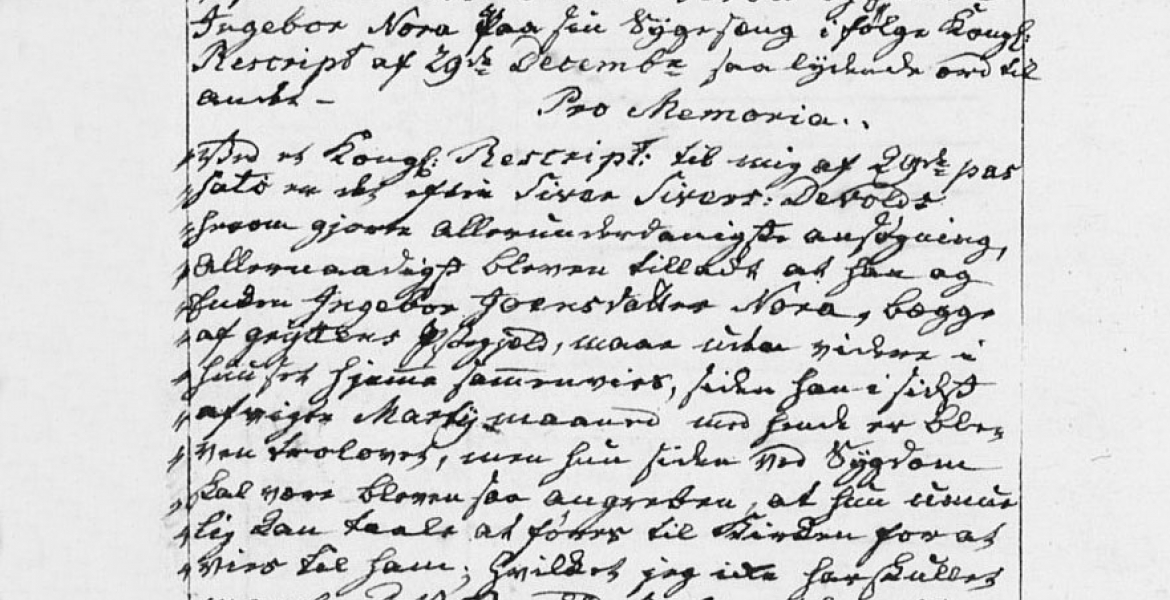 Ingebor Nora paa sin Sygeseng i følge Kongl:
Rescript af 29de Decembr saa lydende ord til
andet -
Pro Memoria..
"Ved et Kongl: Rescript: til mig af 29de pas
"sato er det efter Siver Sivers: Devolds
"herom giorte allerunderdanigste ansøgning,
"allernaadigst bleven tilladt at han og
"Enken Ingebor Joensdatter Nora, begge
"af gryttens Præstegield, maae uden videre i
"huuset hiemme sammenvies, siden han i sidst
"afvigte Martij maaned med hende er ble-
"ven trolovet, men hun siden ved Sygdom
"skal være bleven saa angreben, at hun umue
"lig kan taale at føres til Kirken for at
"vies til ham; hvilket jeg ikke har skullet